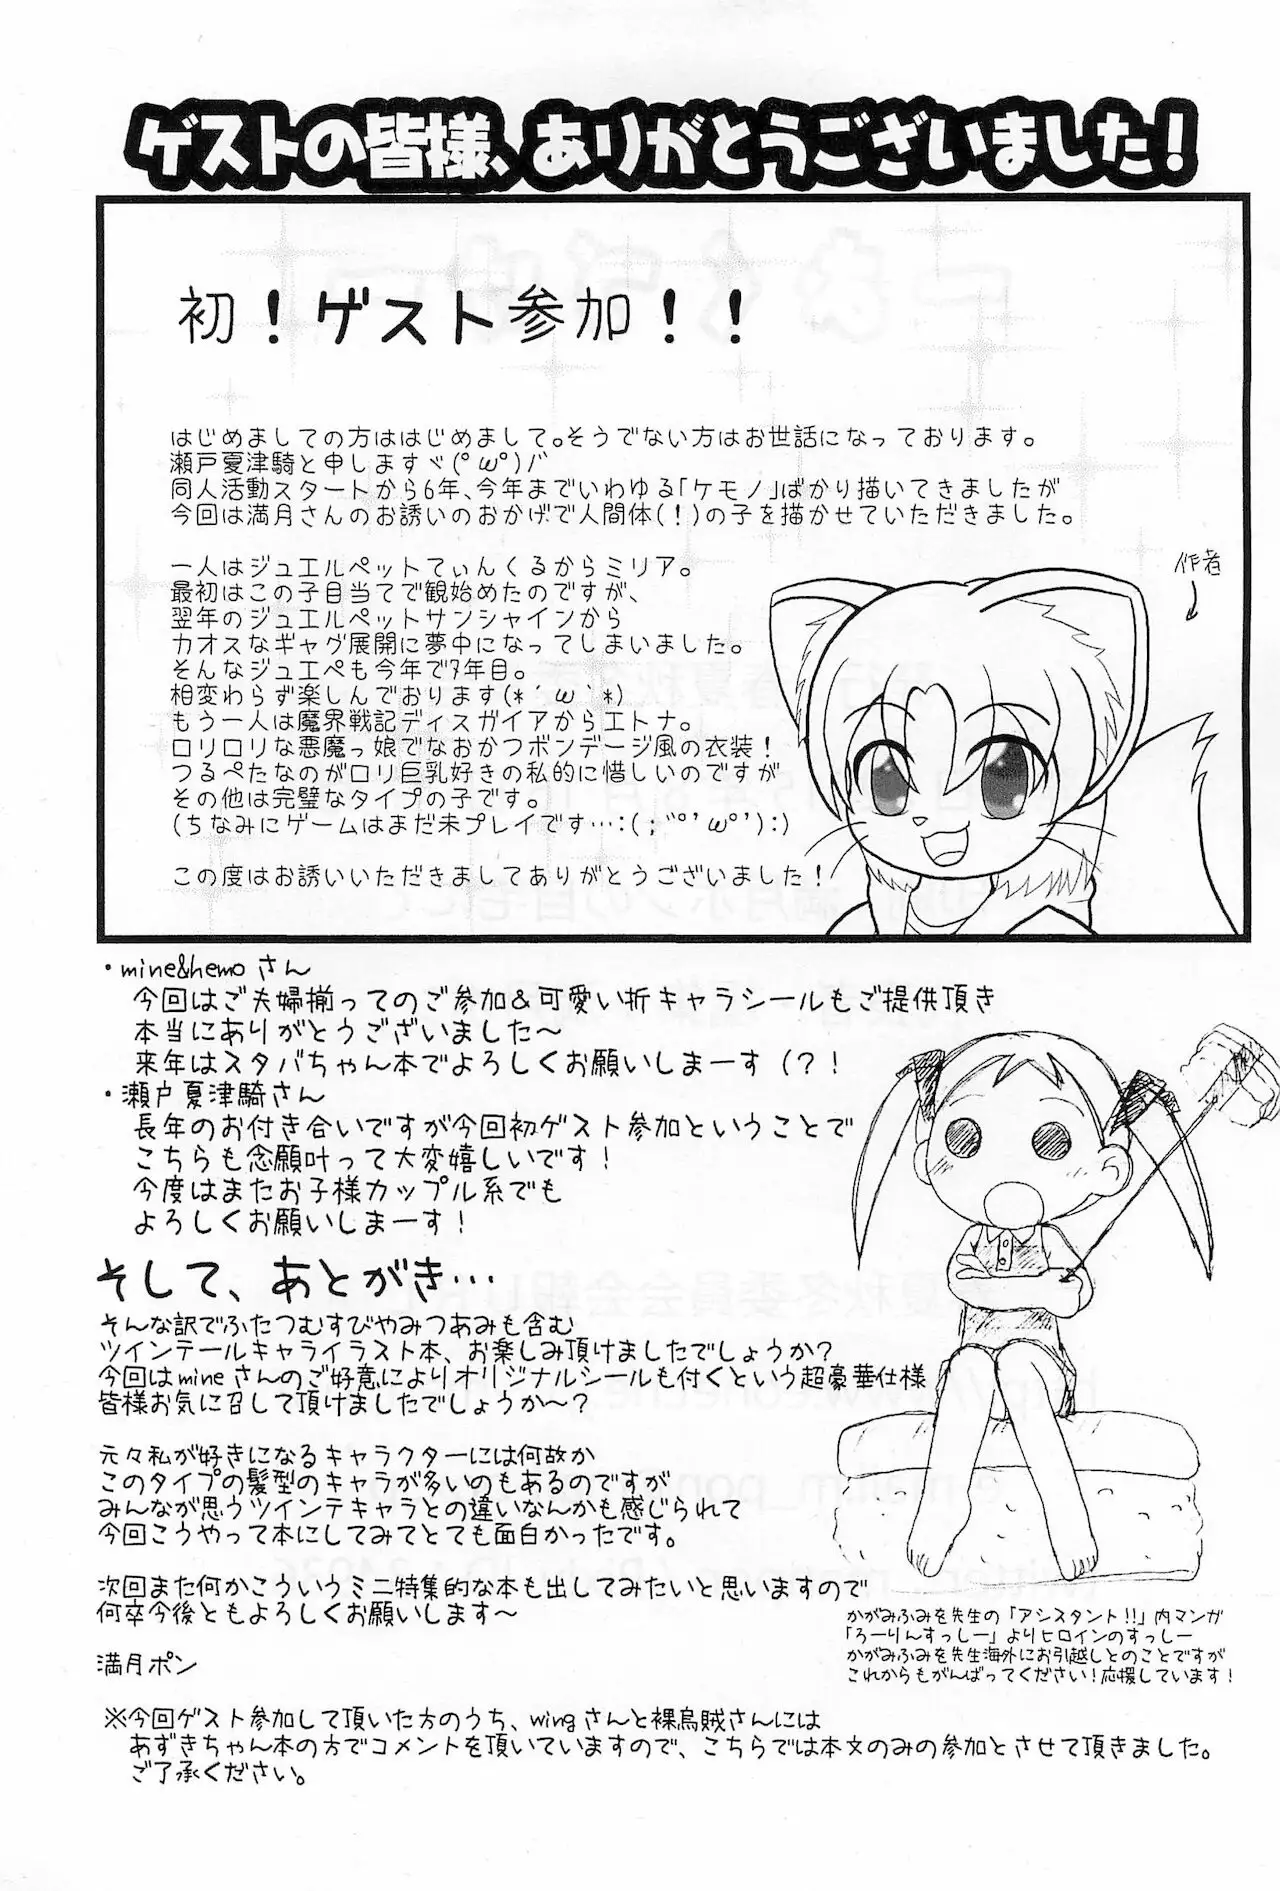 ゲストの皆様、ありがとうございました!
初!ゲスト参加!!
はじめましての方ははじめまして。そうでない方はお世話になっております。
瀬戸夏津騎と申しますヾ(°ω°)バ
同人活動スタートから6年、今年までいわゆる「ケモノ」ばかり描いてきましたが
今回は満月さんのお誘いのおかげで人間体(!)の子を描かせていただきました。
一人はジュエルペットてぃんくるからミリア。
最初はこの子目当てで観始めたのですが、
翌年のジュエルペットサンシャインから
カオスなギャグ展開に夢中になってしまいました。
そんなジュエペも今年で7年目。
相変わらず楽しんでおります(*´ω`*)
もう一人は魔界戦記ディスガイアからエトナ。
ロリロリな悪魔っ娘でなおかつボンデージ風の衣装!
つるぺたなのがロリ巨乳好きの私的に惜しいのですが
その他は完璧なタイプの子です。
(ちなみにゲームはまだ未プレイです…:(;゛°'ω°'):)
この度はお誘いいただきましてありがとうございました!
作者
・mine&hemoさん
今回はご夫婦揃ってのご参加&可愛い折キャラシールもご提供頂き
本当にありがとうございました~
来年はスタバちゃん本でよろしくお願いしまーす(?!
・瀬戸夏津騎さん
長年のお付き合いですが今回初ゲスト参加ということで
こちらも念願叶って大変嬉しいです!
今度はまたお子様カップル系でも
よろしくお願いしまーす!
そして、あとがき…
そんな訳でふたつむすびやみつあみも含む
ツインテールキャライラスト本、お楽しみ頂けましたでしょうか?
今回はmineさんのご好意によりオリジナルシールも付くという超豪華仕様
皆様お気に召して頂けましたでしょうか~?
元々私が好きになるキャラクターには何故か
このタイプの髪型のキャラが多いのもあるのですが
みんなが思うツインテキャラとの違いなんかも感じられて
今回こうやって本にしてみてとても面白かったです。
次回また何かこういうミニ特集的な本も出してみたいと思いますので
何卒今後ともよろしくお願いします~
満月ポン
かがみふみを先生の「アシスタント!!」内マンガ
「ろーりんすっしー」よりヒロインのすっしー
かがみふみを先生海外にお引越しとのことですが
これからもがんばってください!応援しています!
※今回ゲスト参加して頂いた方のうち、wingさんと裸烏賊さんには
あずきちゃん本の方でコメントを頂いていますので、こちらでは本文のみの参加とさせて頂きました。
ご了承ください。